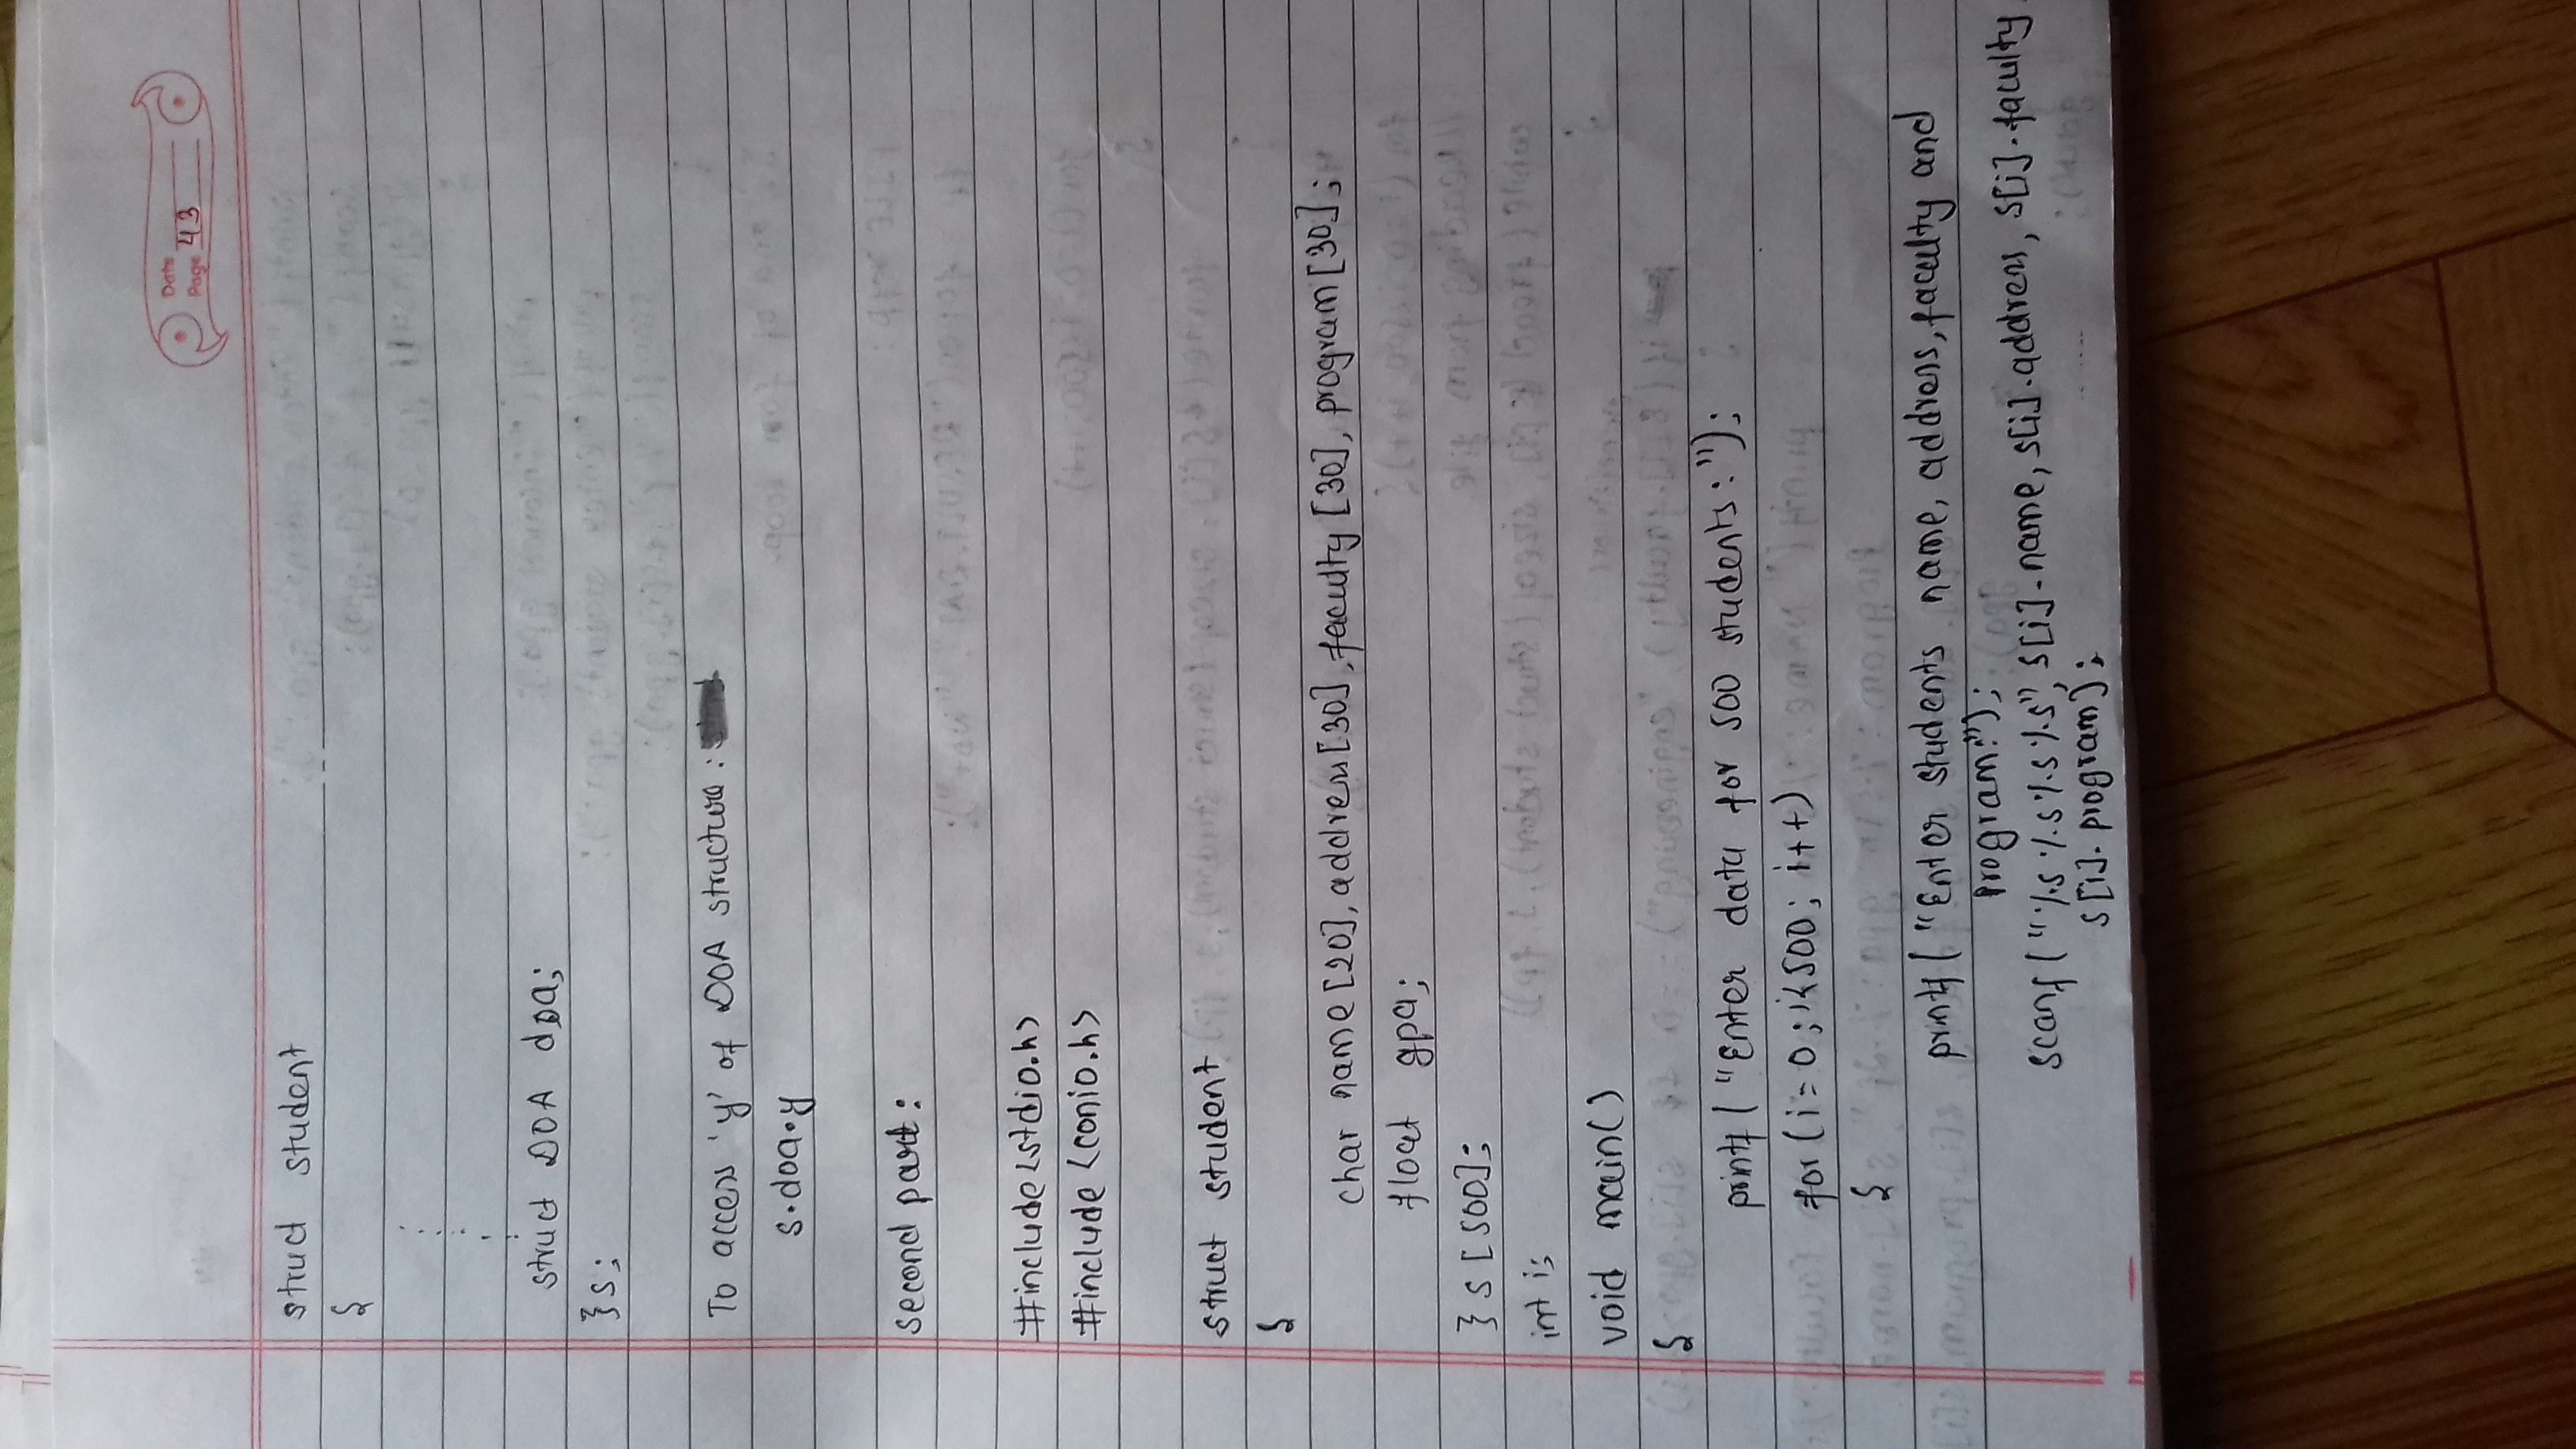 Date
Page 43
struct student
{
struct DOA doa;
}s;
To access 'y' of DOA structure:
s.doa.y
second part:
#include<stdio.h>
#include <conio.h>
struct student
{
char name[20], address[30], faculty [30], program[30];
float gpa;
} s [500];
int i;
void main()
{
printf("Enter data for 500 students:");
for(i=0; i<500; i++)
{
printf("Enter students name, address, faculty and
program:");
scanf("%s %s %s %s", s[i].name, s[i].address, s[i].faculty,
s[i].program);